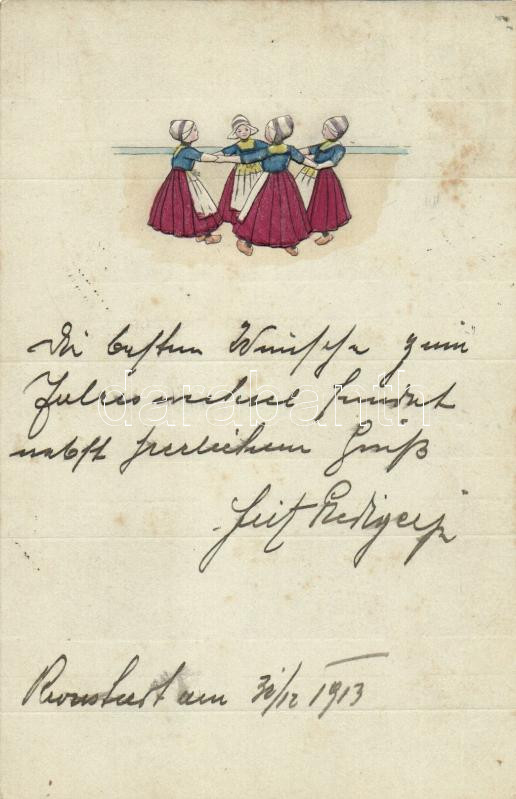 Die besten Wünsche zum
Jahreswechsel sendet
nebst herzlichem Gruß
Fritz
am 31/12 1913
darabanth